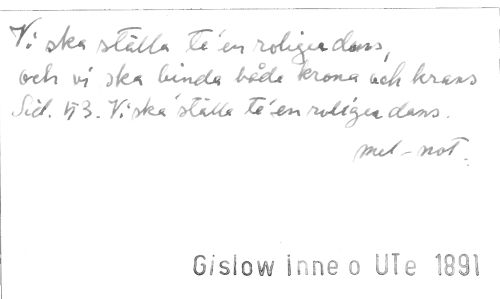 Vi ska ställa te' en roliger dans,
och vi ska binda både krona och krans
Sid. 53. Vi ska ställa te' en roliger dans.
mel-not.
Gislow Inne o UTe 1891